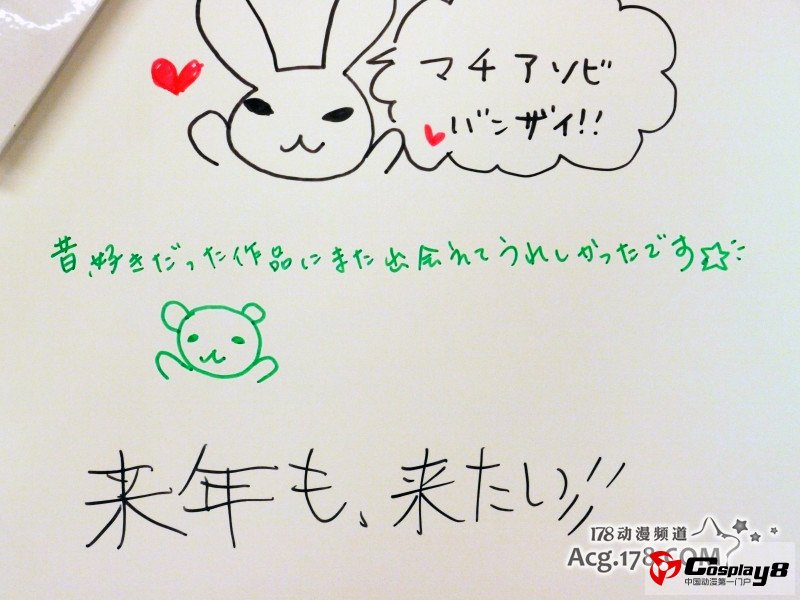 マチアソビ
バンザイ!!
昔、好きだった作品にまた出会えてうれしかったです☆
来年も、来たい!!
178动漫频道
Acg.178.COM
Cosplay8
中国动漫第一门户